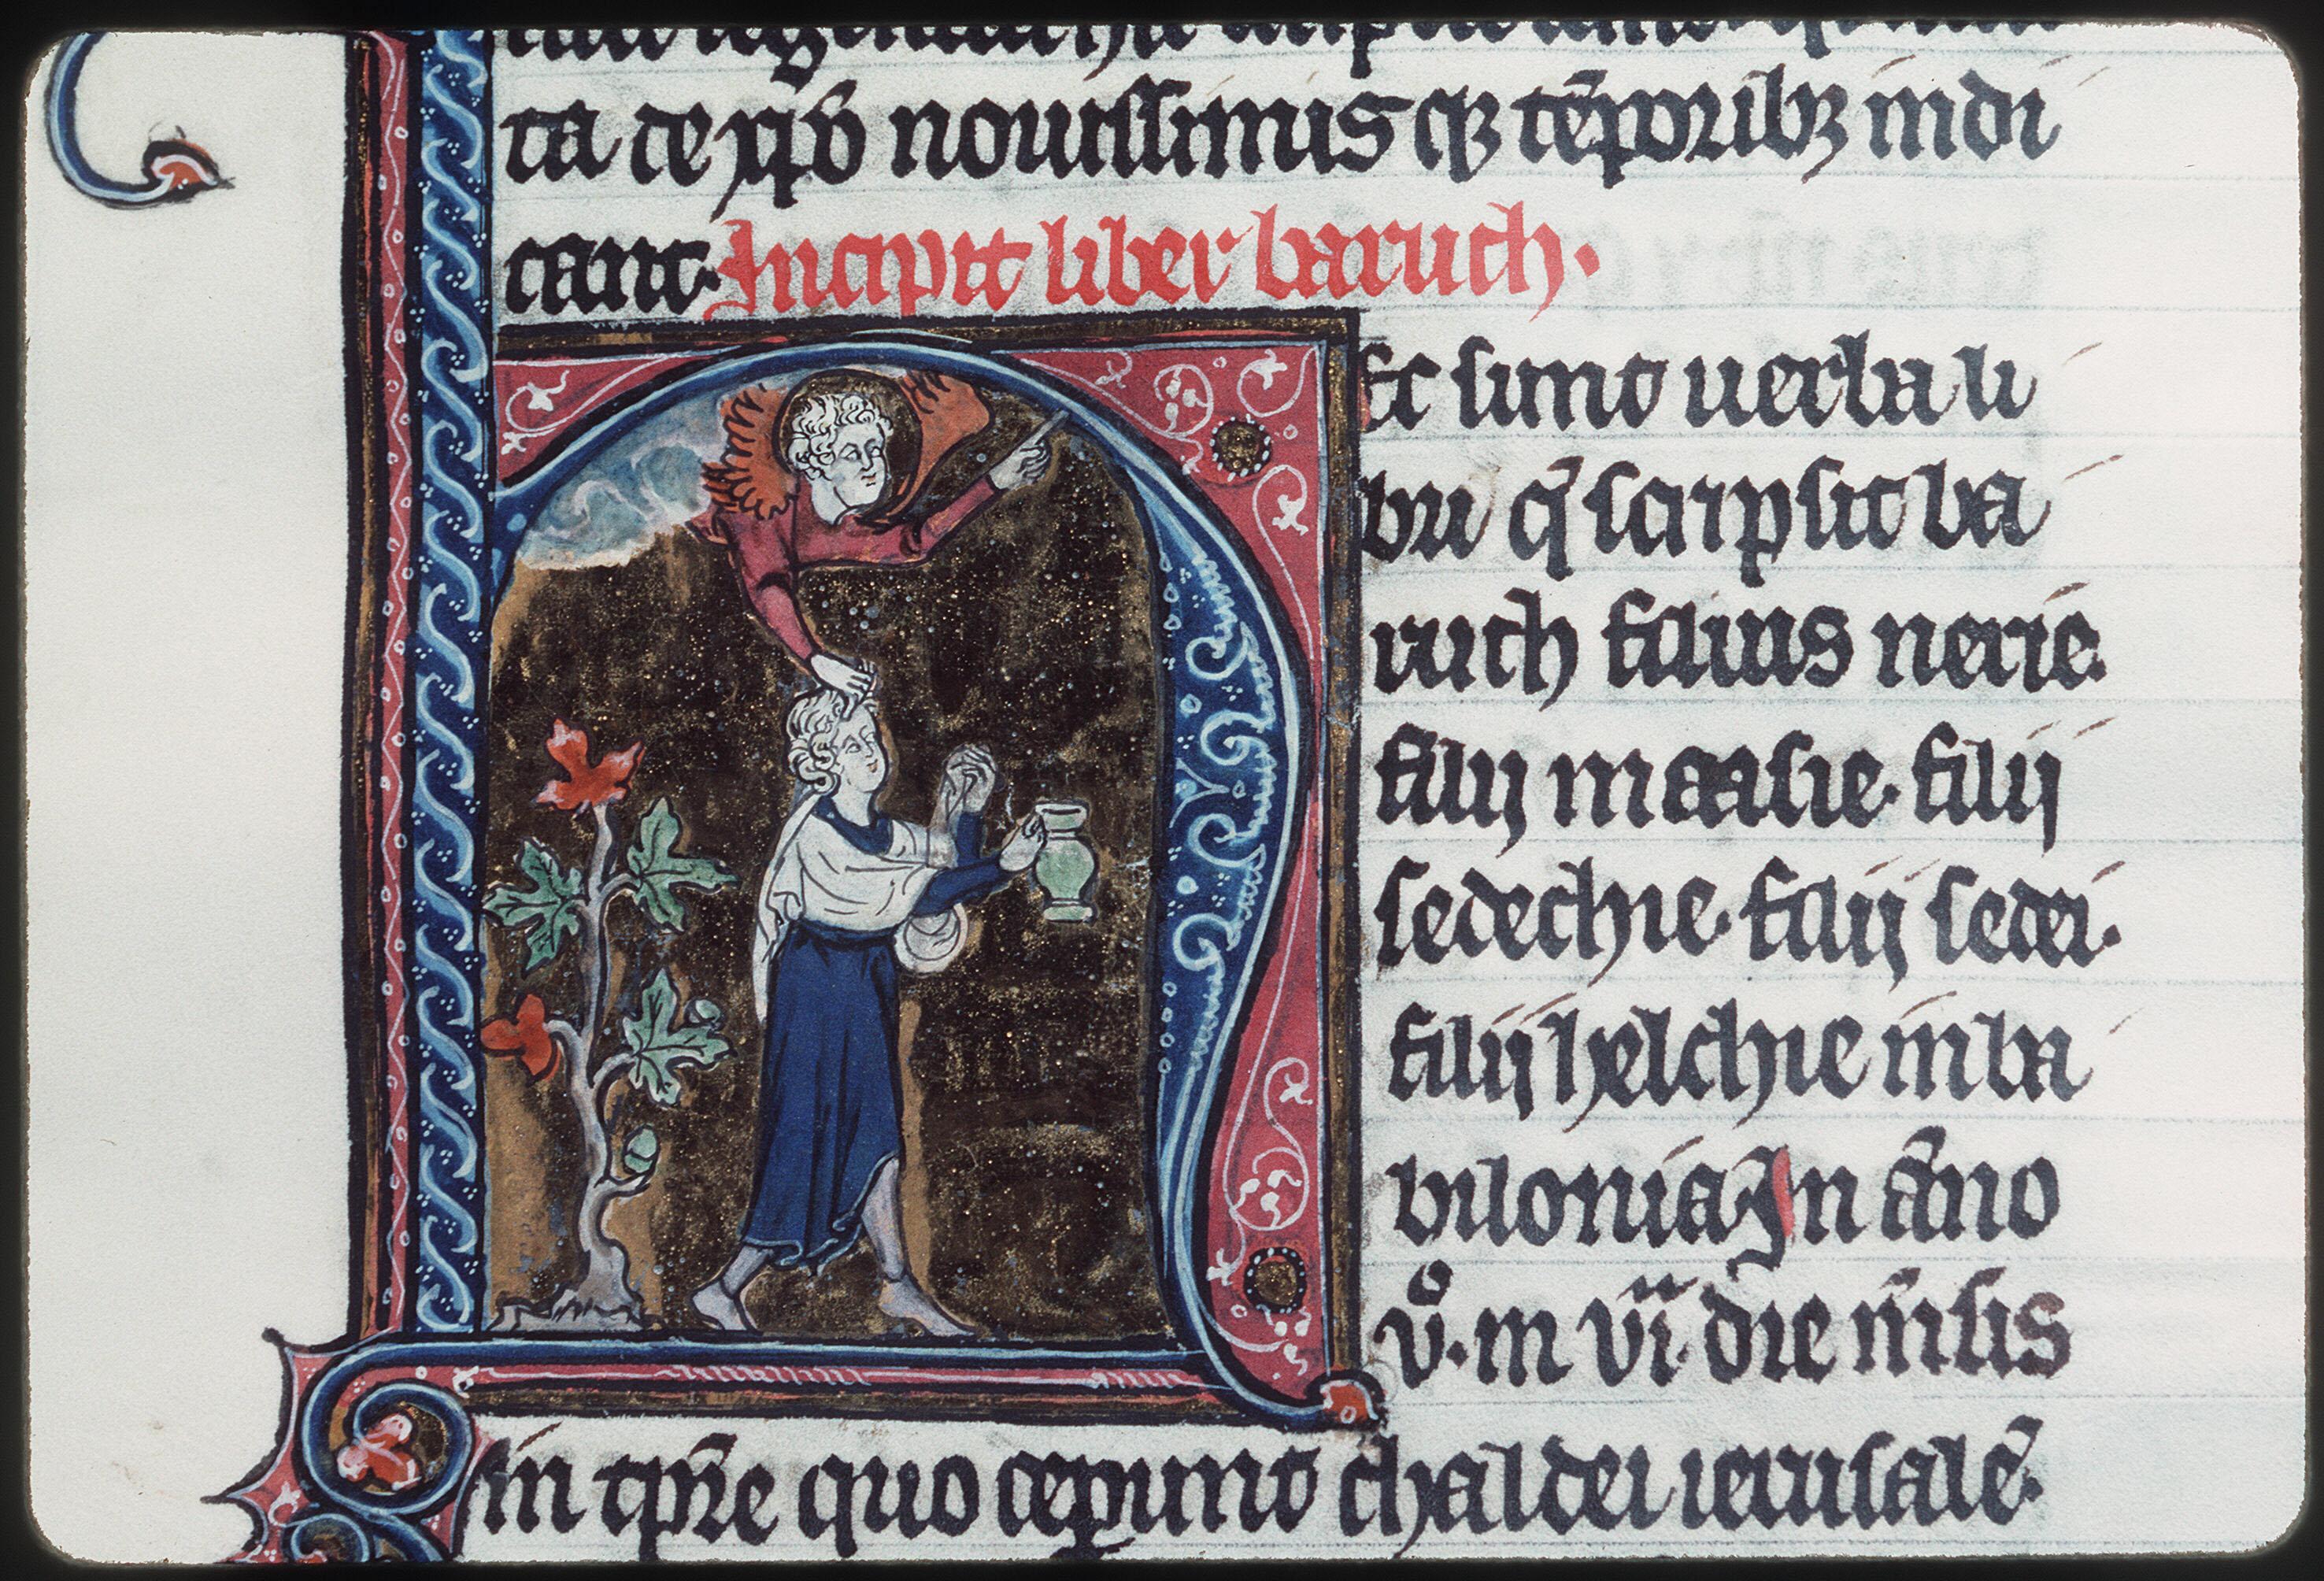 ta de xp̄o nouissimis q̄ꝫ tēporibꝫ indi
cant. Incipit liber baruch.
Ec sunt uerba li
bri q̄ scripsit ba
ruch filius nerie.
filij maasie. filij
sedechie. filij sedei.
filij helchie in ba
bilonia In āno
v͛. in vii. die m̄sis
in tp̄re quo cep̄unt chaldei ierusalē.